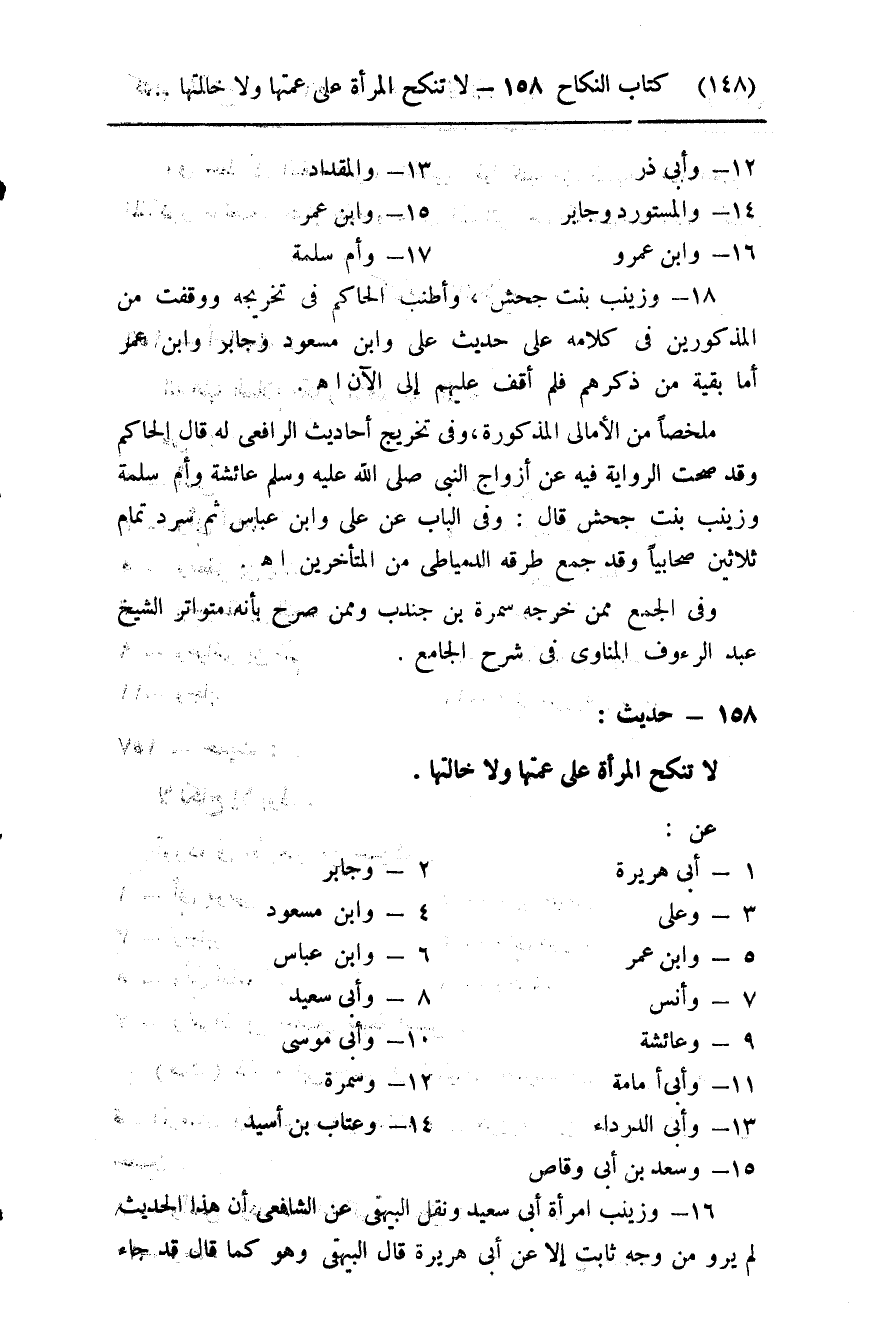 (١٤٨) كتاب النكاح ١٥٨ – لا تنكح المرأة على عمتها ولا خالتها ...
١٢– وأبى ذر ١٣– والمقداد
١٤– والمستورد وجابر ١٥– وابن عمر
١٦– وابن عمرو ١٧– وأم سلمة
١٨– وزينب بنت جحش ، وأطنب الحاكم فى تخريجه ووقفت من
المذكورين فى كلامه على حديث على وابن مسعود وجابر وابن عمر
أما بقية من ذكرهم فلم أقف عليهم إلى الآن ا ه .
ملخصاً من الأمالى المذكورة،وفى تخريج أحاديث الرافعى له قال الحاكم
وقد صحت الرواية فيه عن أزواج النبى صلى الله عليه وسلم عائشة وأم سلمة
وزينب بنت جحش قال : وفى الباب عن على وابن عباس ثم سرد تمام
ثلاثين صحابياً وقد جمع طرقه الدمياطى من المتأخرين ا ه .
وفى الجمع ممن خرجه سمرة بن جندب وممن صرح بأنه متواتر الشيخ
عبد الرءوف المناوى فى شرح الجامع .
١٥٨ – حديث :
لا تنكح المرأة على عمتها ولا خالتها .
عن :
١ – أبى هريرة ٢ – وجابر
٣ – وعلى ٤ – وابن مسعود
٥ – وابن عمر ٦ – وابن عباس
٧ – وأنس ٨ – وأبى سعيد
٩ – وعائشة ١٠– وأبى موسى
١١– وأبى أ مامة ١٢– وسمرة
١٣– وأبى الدرداء ١٤– وعتاب بن أسيد
١٥– وسعد بن أبى وقاص
١٦– وزينب امرأة أبى سعيد ونقل البيهقى عن الشافعى أن هذا الحديث
لم يرو من وجه ثابت إلا عن أبى هريرة قال البيهقى وهو كما قال قد جاء